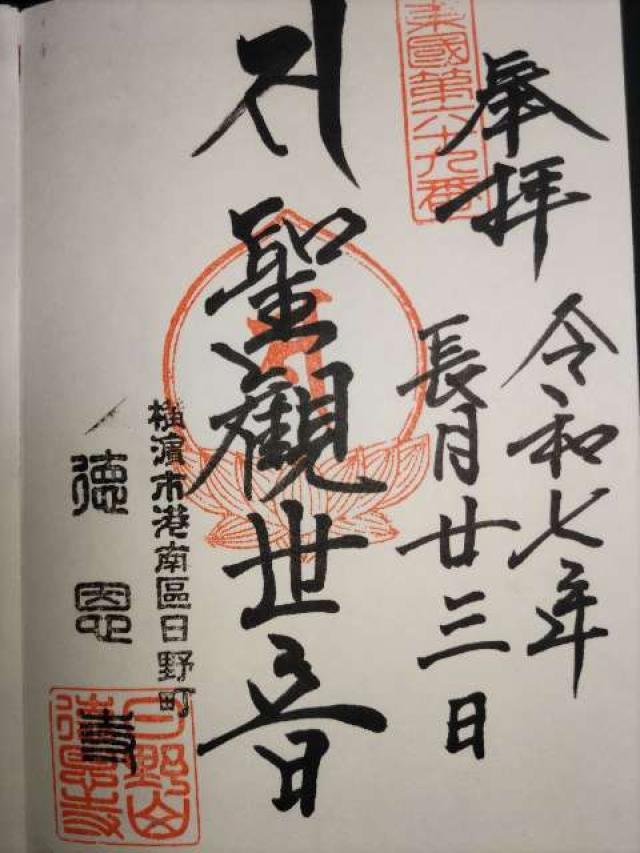 奉拝
東國第六十九番
令和七年
長月廿三日
聖觀世音
横濱市港南區日野町
徳恩寺
日野山
徳恩寺